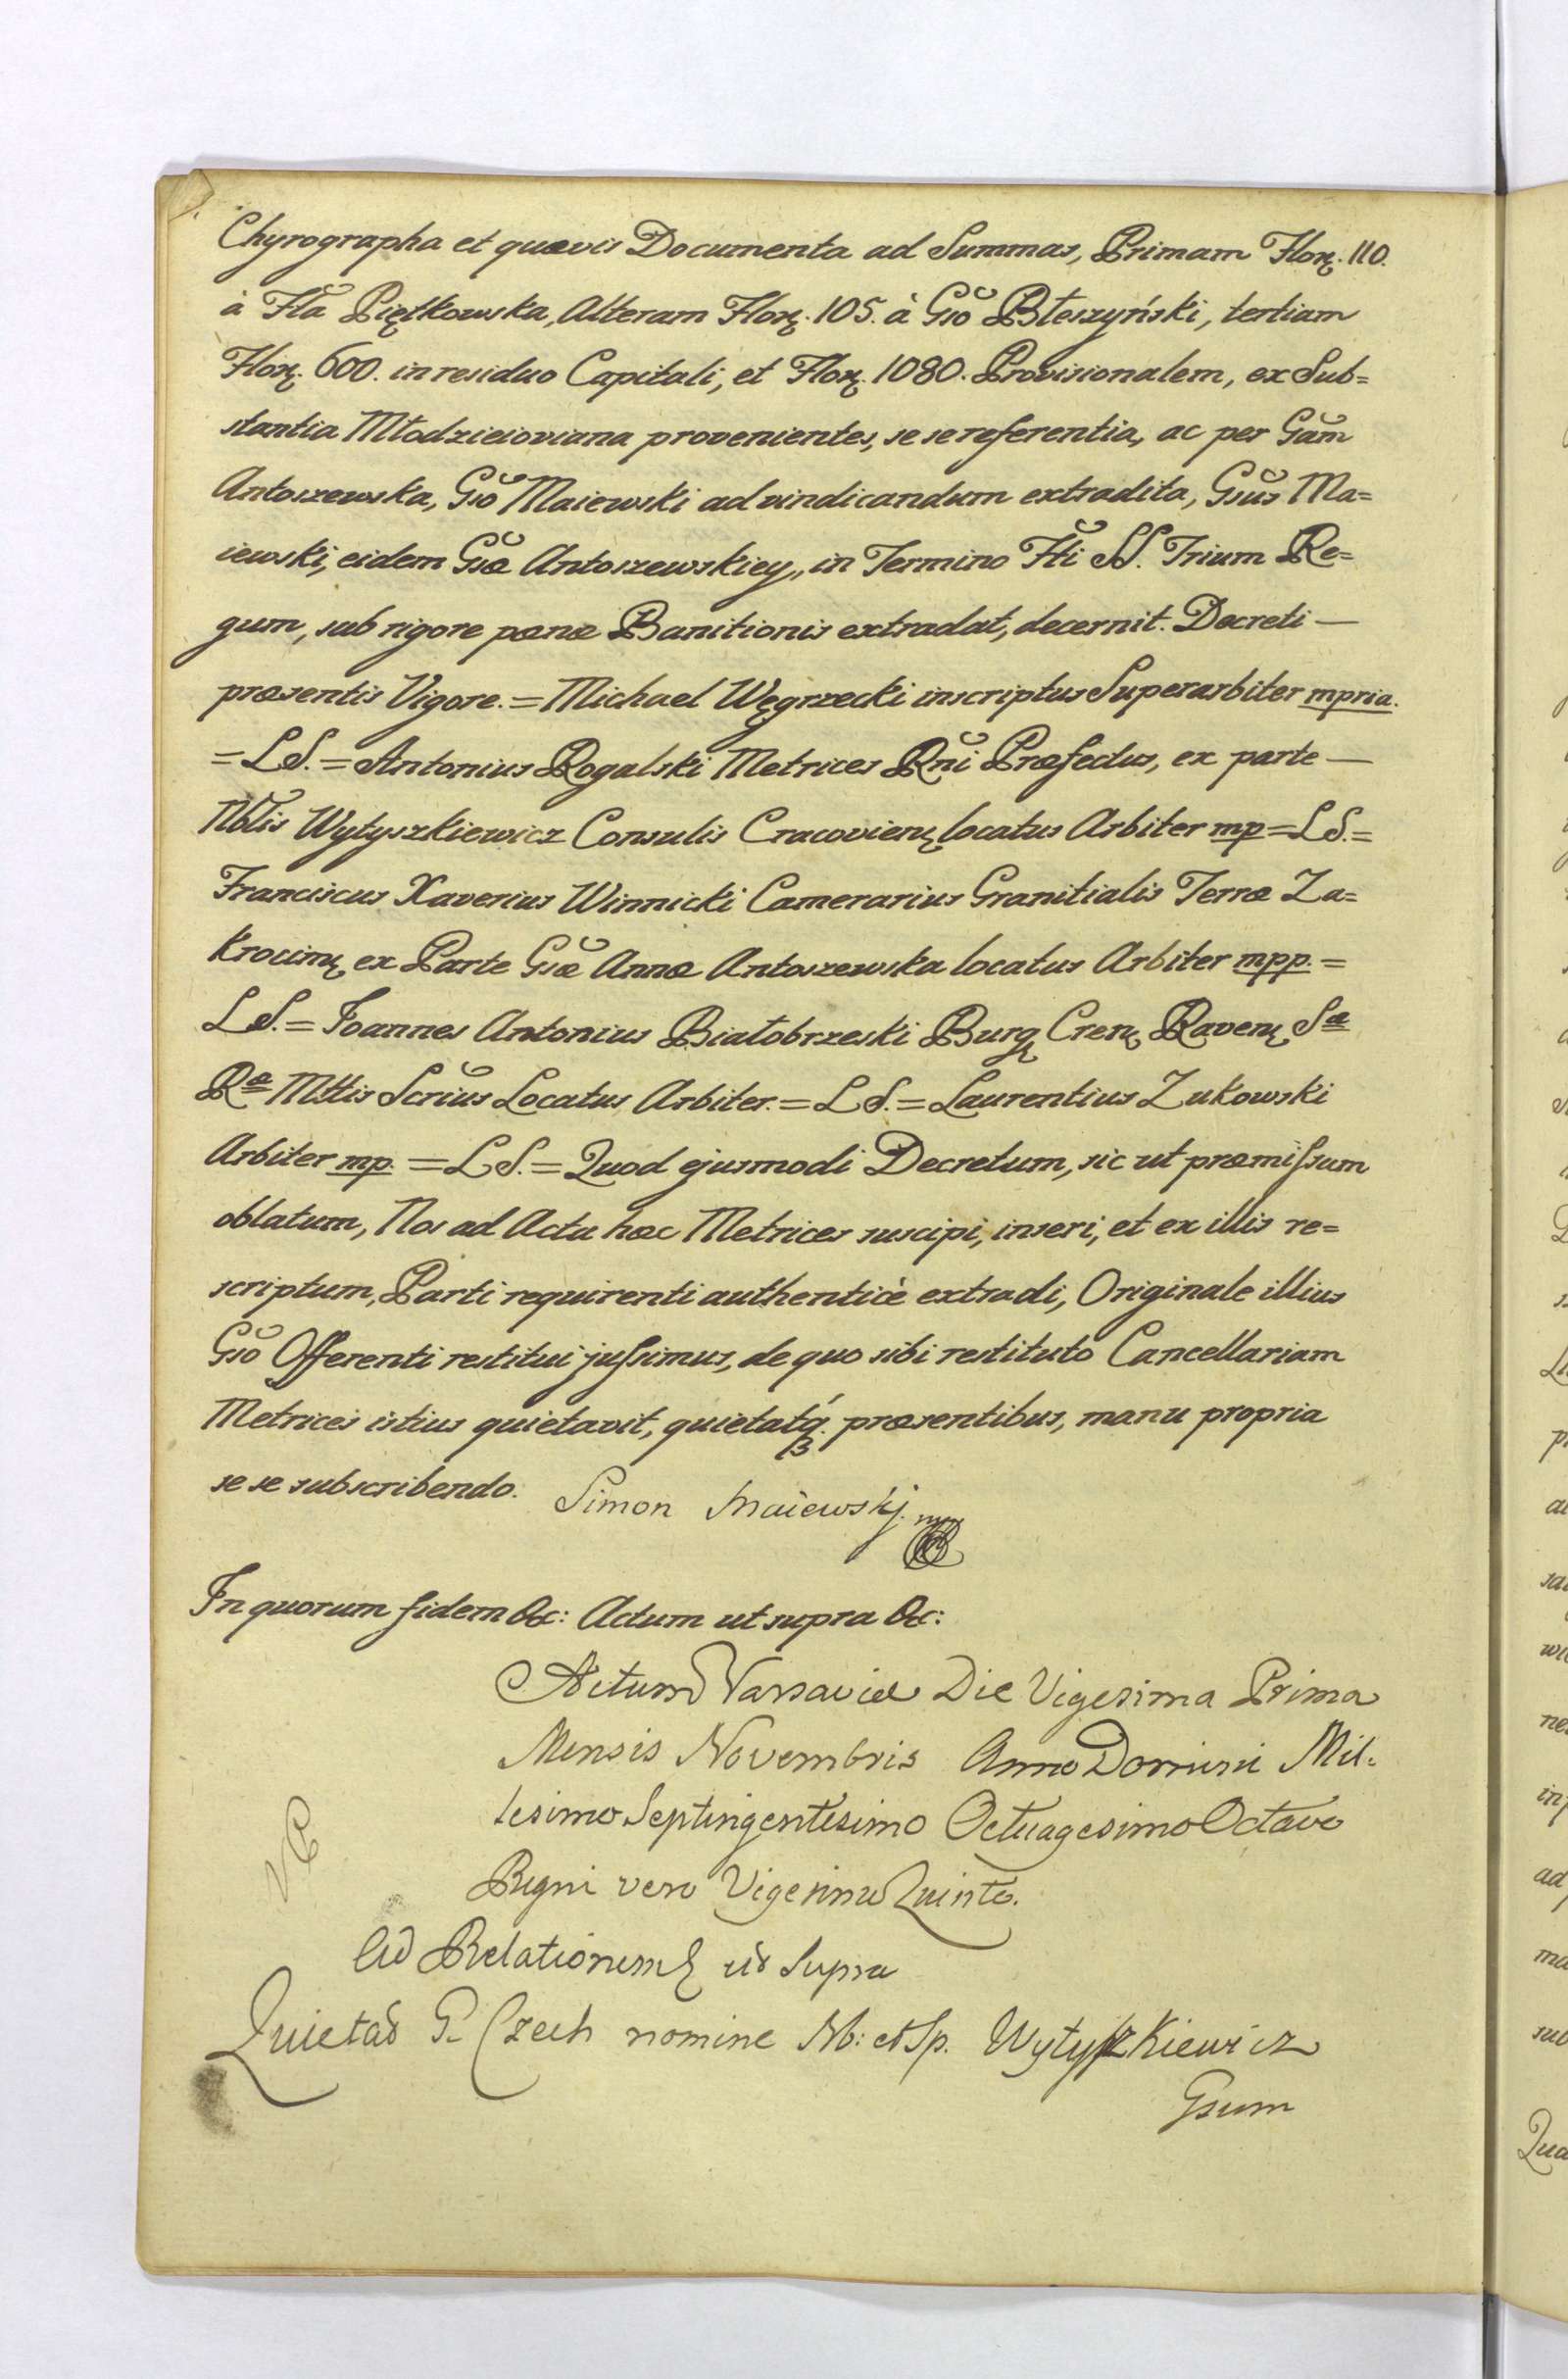 Chyrographa et quævis Documenta ad Summas, Primam Florę. 110.
à Fla͠ Piętkowska, Alteram Florę. 105. à Gso͠ Błeszyński, tertiam
Florę. 600. in residuo Capitali, et Florę. 1080. Provisionalem, ex Sub=
stantia Młodzieioviana provenientes, se se referentia, ac per Gam͠
Antoszewska, Gso͠ Maiewski ad vindicandum extradita, Gsus͠ Ma=
iewski, eidem Gsæ͠ Antoszewskiey, in Termino Fti͠ SS. Trium Re=
gum, sub rigore pœnæ Banitionis extradat, decernit. Decreti —
præsentis Vigore. = Michael Węgrzecki inscriptus Superarbiter mpria.
= LS. = Antonius Rogalski Metrices Rni͠ Præfectus, ex parte —
Nblis͠ Wytyszkiewicz Consulis Cracovienę locatus Arbiter mp = LS. =
Franciscus Xaverius Winnicki Camerarius Granitialis Terræ Za=
krocimę ex Parte Gsæ͠ Annæ Antoszewska locatus Arbiter mpp. =
LS. = Joannes Antonius Białobrzeski Burgę Crenę Ravenę Sæ
Ræ Mttis Scrius͠ Locatus Arbiter. = LS. = Laurentius Zukowski
Arbiter mp. = LS. = Quod ejusmodi Decretum, sic ut præmiſsum
oblatum, Nos ad Acta hæc Metrices suscipi, inseri, et ex illis re=
scriptum, Parti requirenti authenticè extradi, Originale illius
Gso͠ Offerenti restitui juſsimus, de quo sibi restituto Cancellariam
Metrices istius quietavit, quietatq́. præsentibus, manu propria
se se subscribendo. Simon Maiewskj. mp
In quorum fidem &c: Actum ut supra &c:
Actum Varsaviæ Die Vigesima Prima
Mensis Novembris Anno Domini Mil=
lesimo Septingentesimo Octuagesimo Octavo
Regni vero Vigesimo Quinto.
Ad Relationem ut Supra
Quietat G. Czech nomine Nb: et Sp. Wytyſzkiewicz
Gsum